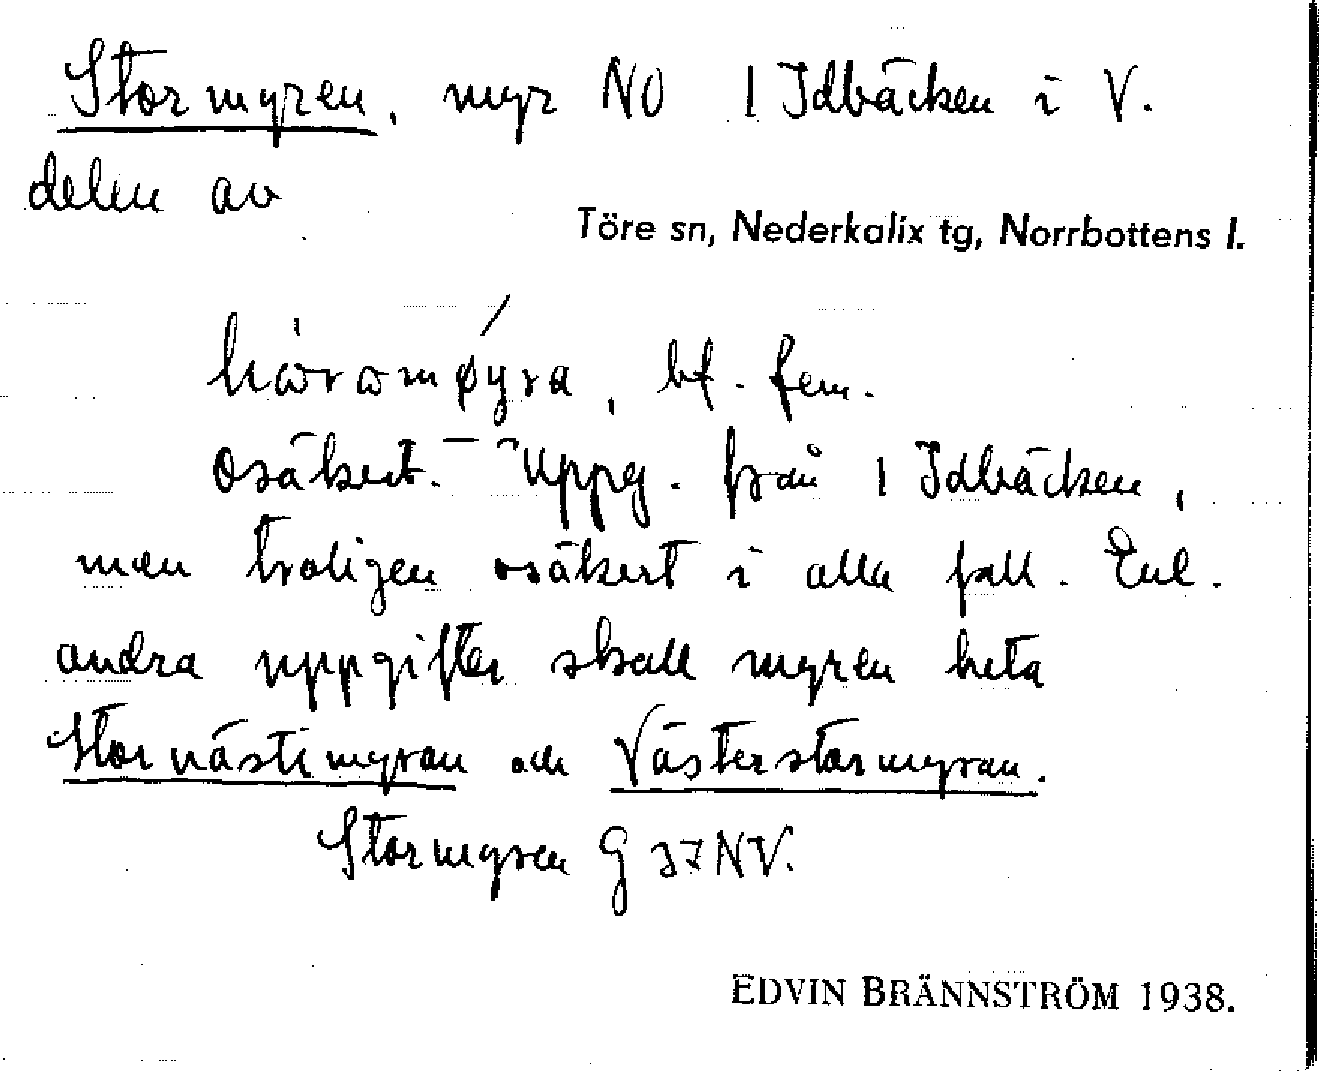 Stormyren, myr NO I Idbäcken i V.
delen av
Töre sn, Nederkalix tg, Norrbottens l.
bf. fem.
osäkert. — Uppg. från I Idbäcken,
men troligen osäkert i alla fall. Enl.
andra uppgifter skall myren heta
Stornästimyran och Västerstormyran.
Stormyren G 37 NV.
EDVIN BRÄNNSTRÖM 1938.